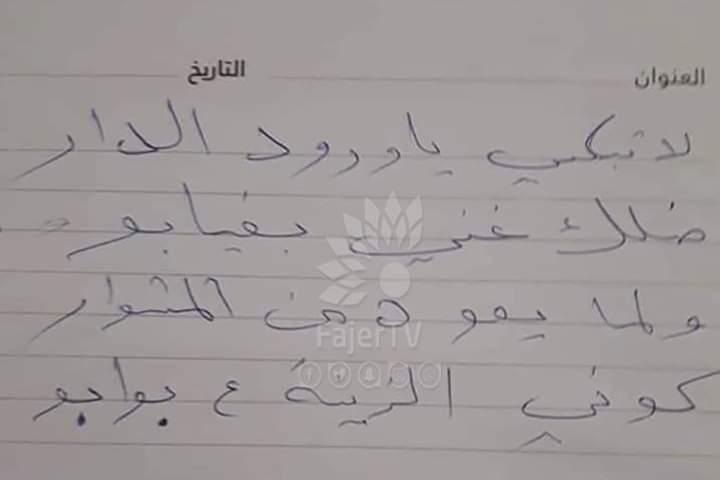 العنوان التاريخ
لا تبكي يا ورود الدار
ضلك غني بغيابو
ولما يعود من المشوار
كوني الزينة ع بوابو
FajerTV